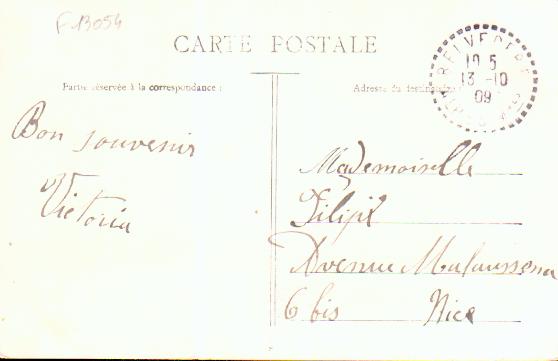 F-13054
CARTE POSTALE
Partie réservée à la correspondance :
Adresse du destinataire
BELVEDERE
10 5
13 -10
09
Bon souvenir
Victoria
Mademoiselle
Avenue Malaussena
6 bis Nice